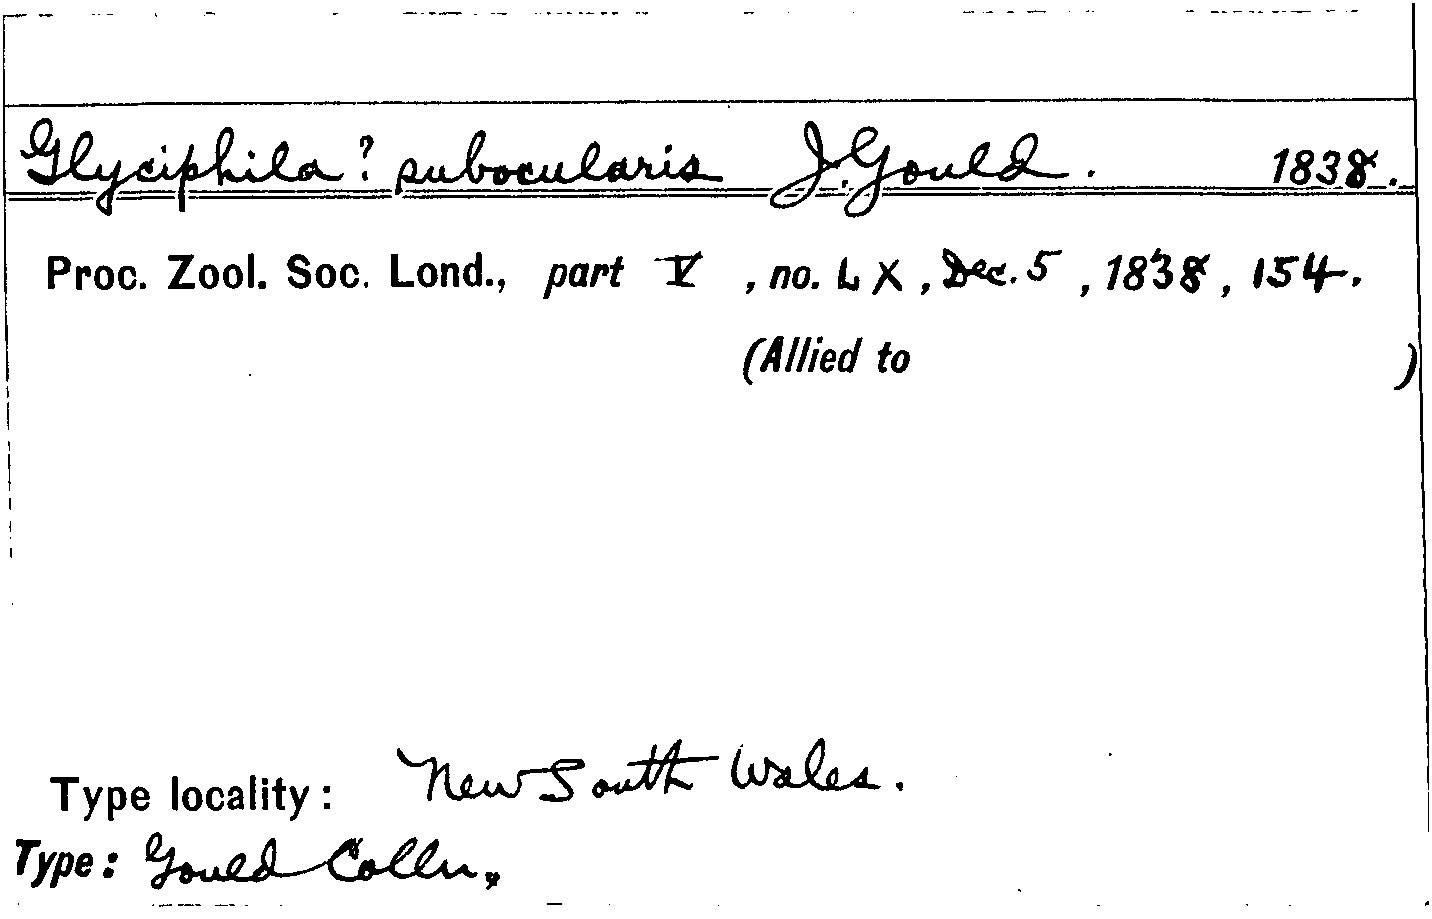 Glyciphila? subocularis J. Gould. 1838.
Proc. Zool. Soc. Lond., part V, no. LX, Dec. 5, 1838, 154.
(Allied to )
Type locality: New South Wales.
Type: Gould Colln.